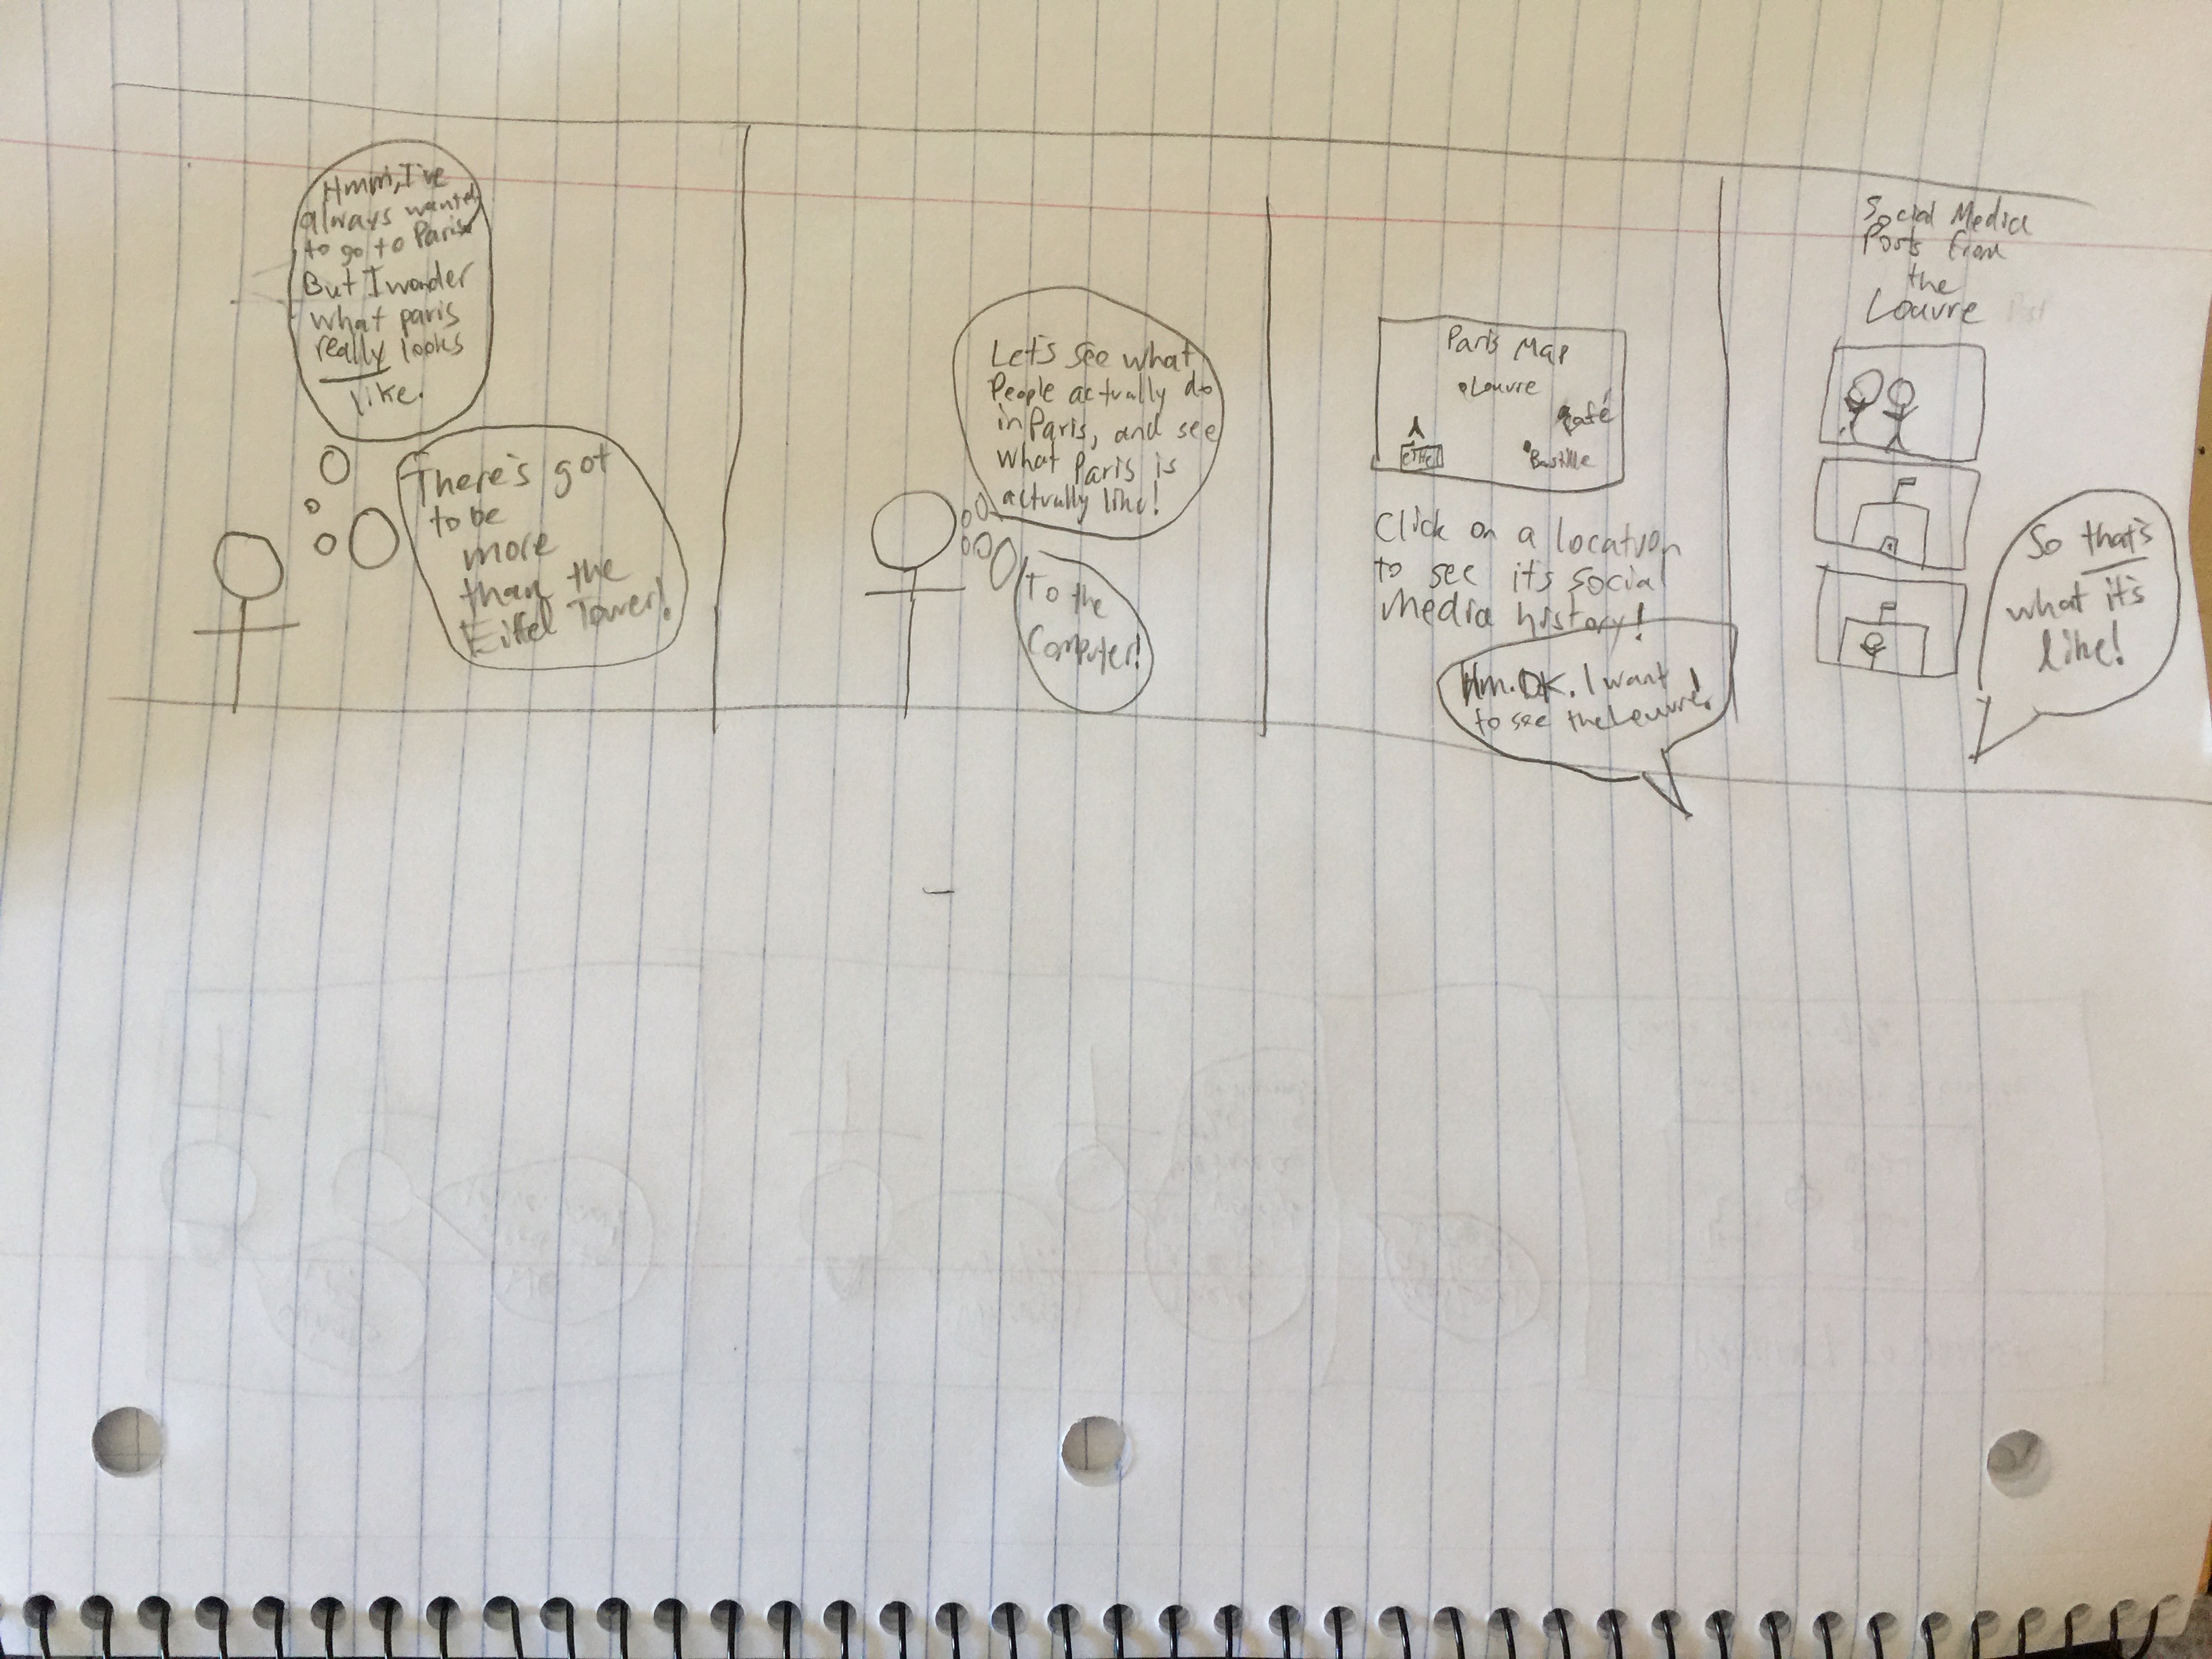 Hmm, I've
always wanted
to go to Paris.
But I wonder
what paris
really looks
like.
There's got
to be
more
than the
Eiffel Tower!
Let's see what
People actually do
in Paris, and see
what Paris is
actually like!
To the
Computer!
Paris Map
Louvre
Café
Eiffel
Bastille
Click on a location
to see it's social
media history!
Hm. OK. I want
to see the Louvre!
Social Media
Posts from
the
Louvre
So that's
what it's
like!